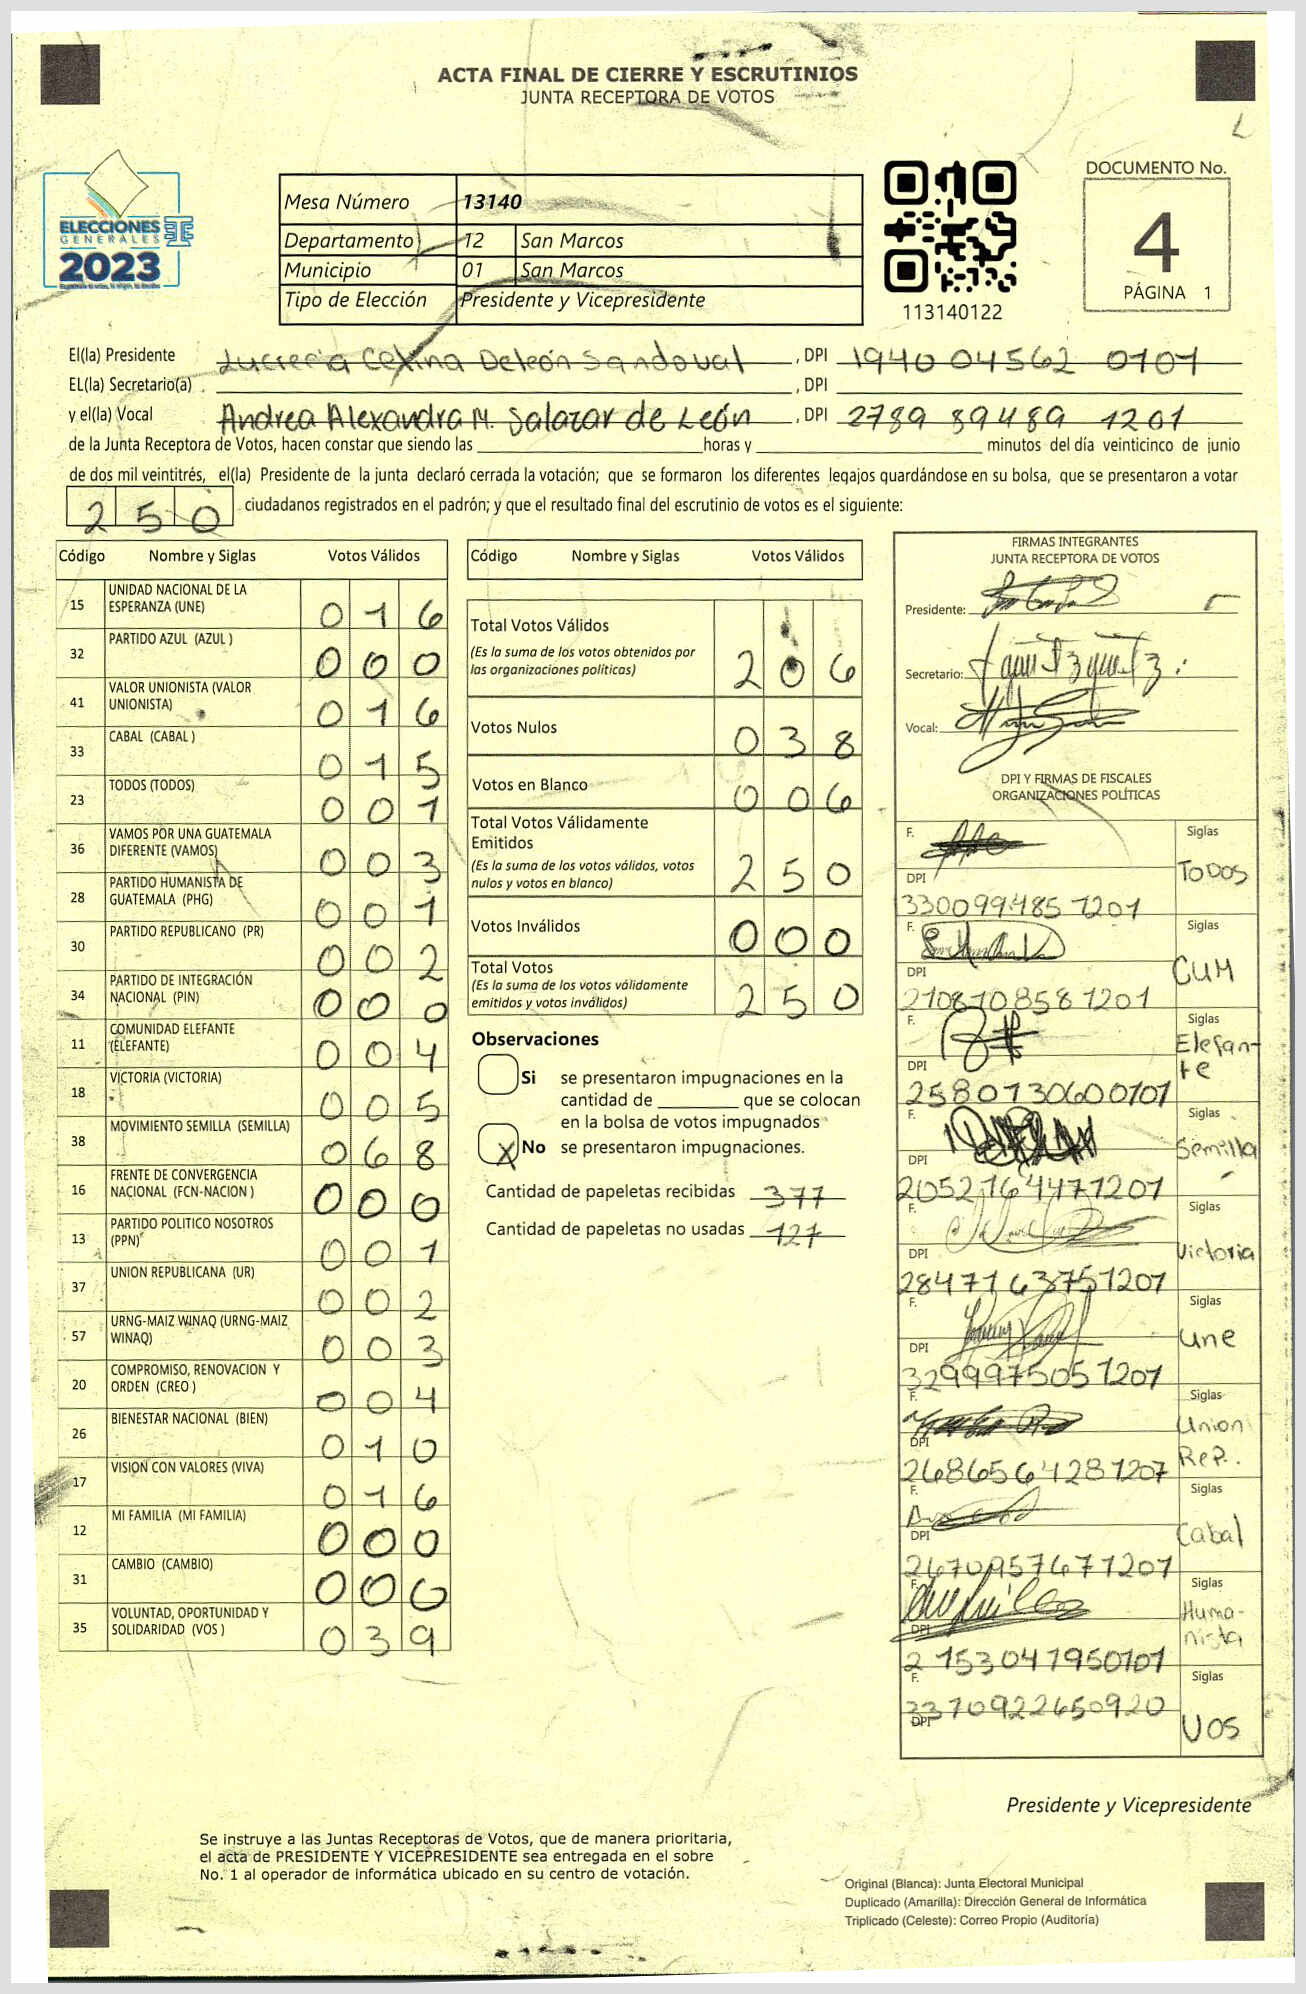 ACTA FINAL DE CIERRE Y ESCRUTINIOS
JUNTA RECEPTORA DE VOTOS
ELECCIONES
GENERALES
2023
Mesa Número 13140
Departamento 12 San Marcos
Municipio 01 San Marcos
Tipo de Elección Presidente y Vicepresidente
113140122
DOCUMENTO No.
4
PÁGINA 1
El(la) Presidente Lucrecia Celina Deleón Sandoval , DPI 1940 04562 0101
EL(la) Secretario(a) , DPI
y el(la) Vocal Andrea Alexandra M. Salazar de León , DPI 2789 89489 1201
de la Junta Receptora de Votos, hacen constar que siendo las horas y minutos del día veinticinco de junio
de dos mil veintitrés, el(la) Presidente de la junta declaró cerrada la votación; que se formaron los diferentes legajos quardándose en su bolsa, que se presentaron a votar
250 ciudadanos registrados en el padrón; y que el resultado final del escrutinio de votos es el siguiente:
Código Nombre y Siglas Votos Válidos
15 UNIDAD NACIONAL DE LA
ESPERANZA (UNE) 016
32 PARTIDO AZUL (AZUL ) 000
41 VALOR UNIONISTA (VALOR
UNIONISTA) 016
33 CABAL (CABAL ) 015
23 TODOS (TODOS) 001
36 VAMOS POR UNA GUATEMALA
DIFERENTE (VAMOS) 003
28 PARTIDO HUMANISTA DE
GUATEMALA (PHG) 001
30 PARTIDO REPUBLICANO (PR) 002
34 PARTIDO DE INTEGRACIÓN
NACIONAL (PIN) 000
11 COMUNIDAD ELEFANTE
(ELEFANTE) 004
18 VICTORIA (VICTORIA) 005
38 MOVIMIENTO SEMILLA (SEMILLA) 068
16 FRENTE DE CONVERGENCIA
NACIONAL (FCN-NACION ) 000
13 PARTIDO POLITICO NOSOTROS
(PPN) 001
37 UNION REPUBLICANA (UR) 002
57 URNG-MAIZ WINAQ (URNG-MAIZ
WINAQ) 003
20 COMPROMISO, RENOVACION Y
ORDEN (CREO ) 004
26 BIENESTAR NACIONAL (BIEN) 010
17 VISION CON VALORES (VIVA) 016
12 MI FAMILIA (MI FAMILIA) 000
31 CAMBIO (CAMBIO) 000
35 VOLUNTAD, OPORTUNIDAD Y
SOLIDARIDAD (VOS ) 039
Código Nombre y Siglas Votos Válidos
Total Votos Válidos
(Es la suma de los votos obtenidos por
las organizaciones políticas) 206
Votos Nulos 038
Votos en Blanco 006
Total Votos Válidamente
Emitidos
(Es la suma de los votos válidos, votos
nulos y votos en blanco) 250
Votos Inválidos 000
Total Votos
(Es la suma de los votos válidamente
emitidos y votos inválidos) 250
Observaciones
Si se presentaron impugnaciones en la
cantidad de que se colocan
en la bolsa de votos impugnados
X No se presentaron impugnaciones.
Cantidad de papeletas recibidas 377
Cantidad de papeletas no usadas 127
FIRMAS INTEGRANTES
JUNTA RECEPTORA DE VOTOS
Presidente:
Secretario:
Vocal:
DPI Y FIRMAS DE FISCALES
ORGANIZACIONES POLÍTICAS
F. Siglas
DPI TODOS
3300994851201
F. Siglas
DPI CUM
2108708581201
F. Siglas
DPI Elefan-
te
2580730600101
F. Siglas
DPI Semilla
2052164471201
F. Siglas
DPI Victoria
2847163751201
F. Siglas
DPI Une
3299975051201
F. Siglas
DPI Union
Rep.
2686564281207
F. Siglas
DPI Cabal
2670957671201
F. Siglas
DPI Huma-
nista
2153041950101
F. Siglas
DPI 3370922650920 VOS
Presidente y Vicepresidente
Se instruye a las Juntas Receptoras de Votos, que de manera prioritaria,
el acta de PRESIDENTE Y VICEPRESIDENTE sea entregada en el sobre
No. 1 al operador de informática ubicado en su centro de votación.
Original (Blanca): Junta Electoral Municipal
Duplicado (Amarilla): Dirección General de Informática
Triplicado (Celeste): Correo Propio (Auditoría)